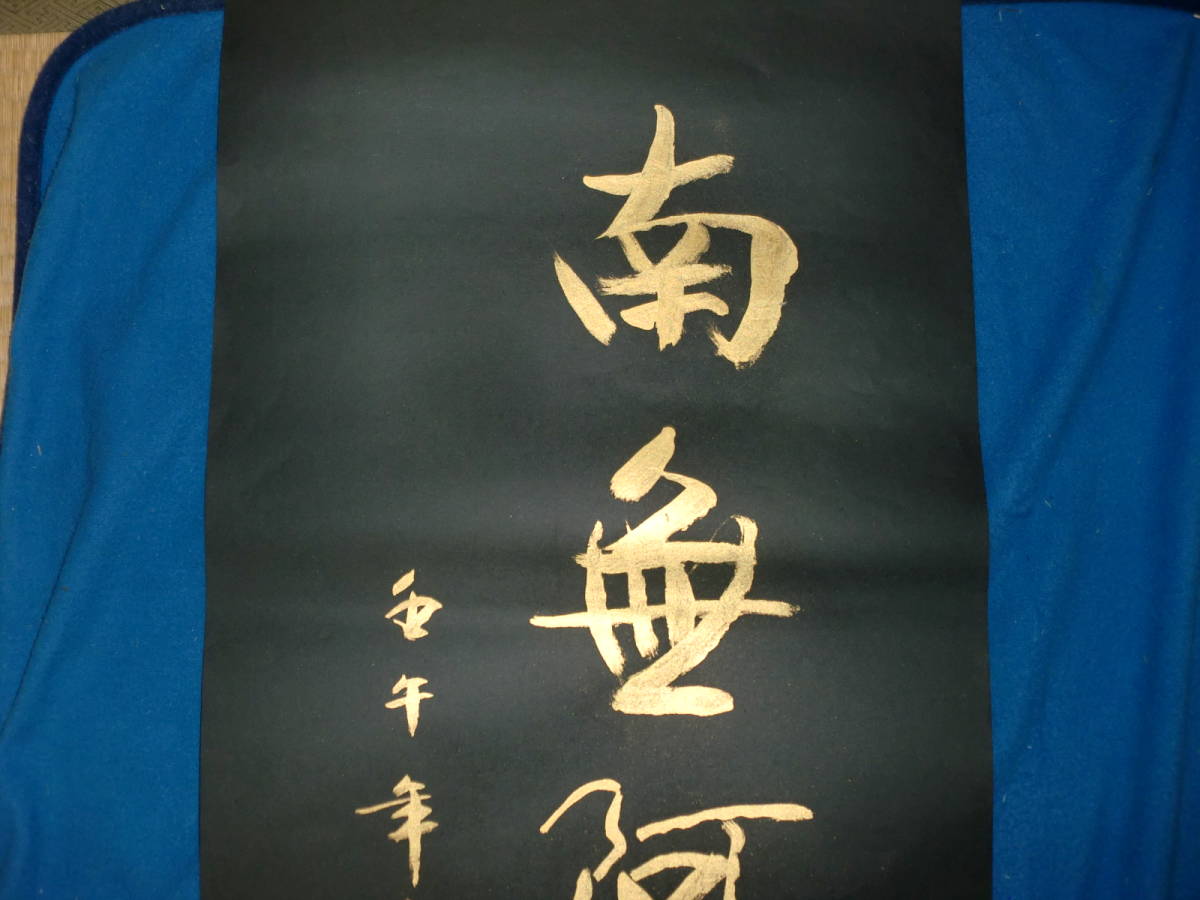 南無阿
壬午年